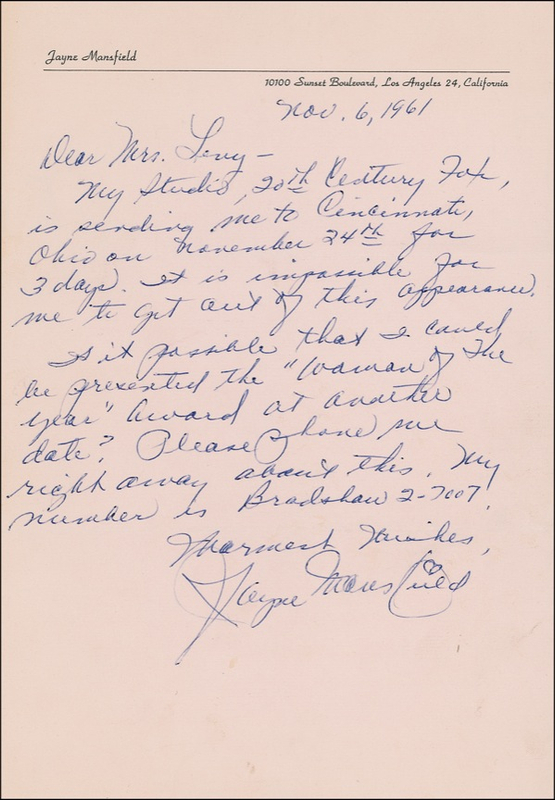 Jayne Mansfield
10100 Sunset Boulevard, Los Angeles 24, California
Nov. 6, 1961
Dear Mrs. Levy -
My Studio, 20th Century Fox,
is sending me to Cincinnati,
Ohio on November 24th for
3 days. It is impossible for
me to get out of this appearance.
Is it possible that I could
be presented the "Woman of The
year" award at another
date? Please phone me
right away about this. My
number is Bradshaw 2-7007.
Warmest Wishes,
Jayne Mansfield